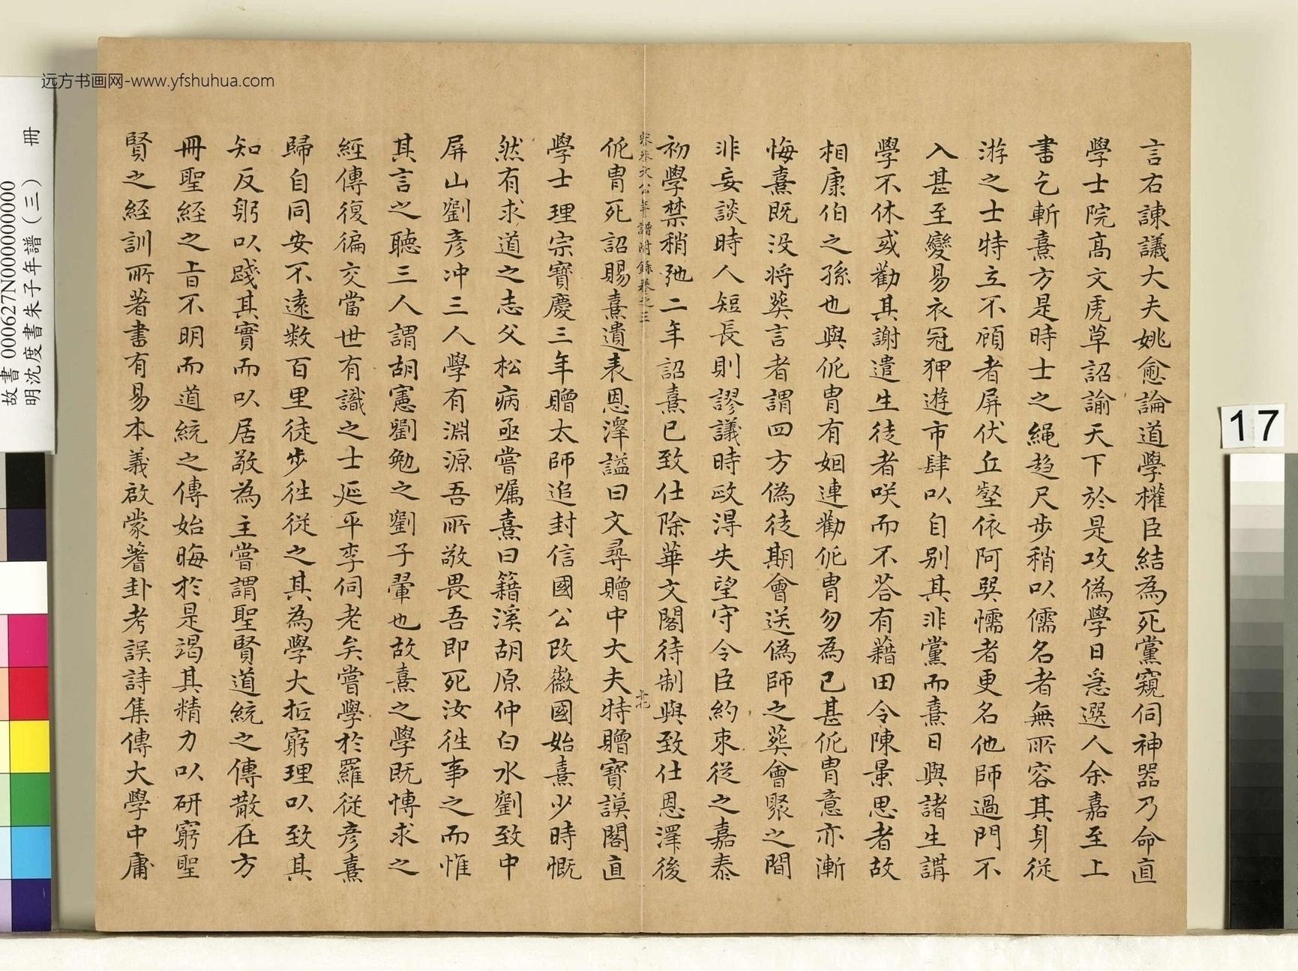 远方书画网-www.yfshuhua.com
言右諌議大夫姚愈論道學權臣結為死黨窺伺神器乃命直
學士院髙文虎草詔諭天下於是攻偽學日急選人余嘉至上
書乞斬熹方是時士之繩趋尺步稍以儒名者無所容其身従
游之士特立不顧者屏伏丘壑依阿巽懦者更名他師過門不
入甚至變易衣冠狎遊市肆以自别其非黨而熹日與諸生講
學不休或勸其謝遣生徒者咲而不荅有籍田令陳景思者故
相康伯之孫也與侂胄有姻連勸侂胄勿為已甚侂胄意亦漸
悔熹既没将葬言者謂四方偽徒期會送偽師之葬會聚之間
非妄談時人短長則謬議時政淂失望守令臣約束従之嘉泰
初學禁稍弛二年詔熹已致仕除華文閣待制與致仕恩澤後
宋朱文公年譜附錄卷之三
侂胄死詔賜熹遺表恩澤謚曰文尋贈中大夫特贈寶謨閣直
學士理宗寶慶三年贈太師追封信國公改徽國始熹少時慨
然有求道之志父松病亟嘗嘱熹曰籍溪胡原仲白水劉致中
屏山劉彥冲三人學有淵源吾所敬畏吾即死汝徃事之而惟
其言之聽三人謂胡憲劉勉之劉子翬也故熹之學既博求之
經傳復徧交當世有識之士延平李侗老矣嘗學於羅従彥熹
歸自同安不逺数百里徒步徃従之其為學大扺窮理以致其
知反躬以踐其實而以居敬為主嘗謂聖賢道統之傳散在方
冊聖經之㫖不明而道統之傳始晦於是竭其精力以研窮聖
賢之經訓所著書有易本義啟蒙蓍卦考誤詩集傳大學中庸
故書 000627N000000000 冊
明沈度書朱子年譜(三)
17